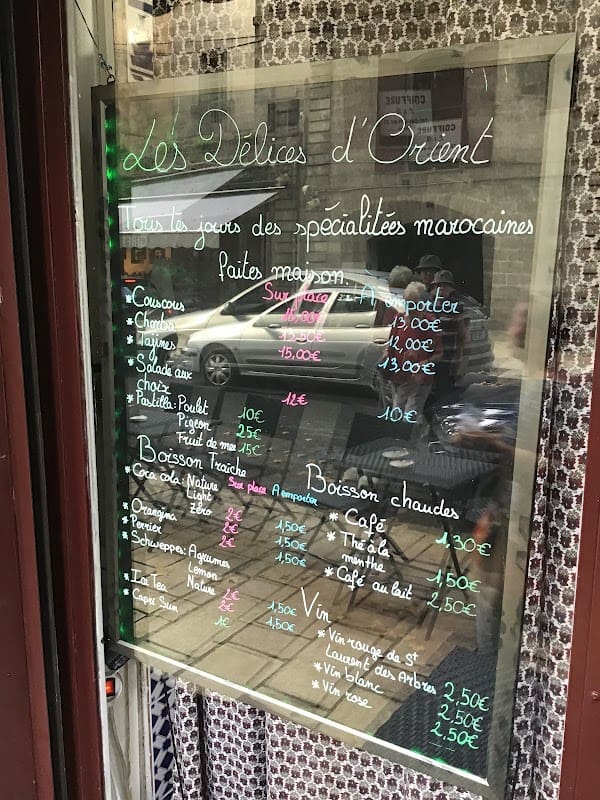 COIFFURE
COIFFURE
Les Délices d'Orient
Tous les jours des spécialitées marocaines
faites maison.
Sur place A emporter
* Couscous 13,00€
* Chorba 13,50€ 12,00€
* Tajines 15,00€ 13,00€
* Salade aux
choix 12€ 10€
* Pastilla: Poulet 10€
Pigeon 25€
Fruit de mer 15€
Boisson Fraîche
Sur place A emporter
* Coca cola: Nature
Light
Zéro 2€ 1,50€
* Orangina 2€ 1,50€
* Perrier 2€ 1,50€
* Schweppes: Agrumes
Lemon
Nature 2€ 1,50€
* Ice Tea 2€ 1,50€
* Capri Sun 1€
Boisson chaudes
* Café 1,30€
* Thé à la
menthe 1,50€
* Café au lait 2,50€
Vin
* Vin rouge de St
Laurent des Arbres 2,50€
* Vin blanc 2,50€
* Vin rose 2,50€